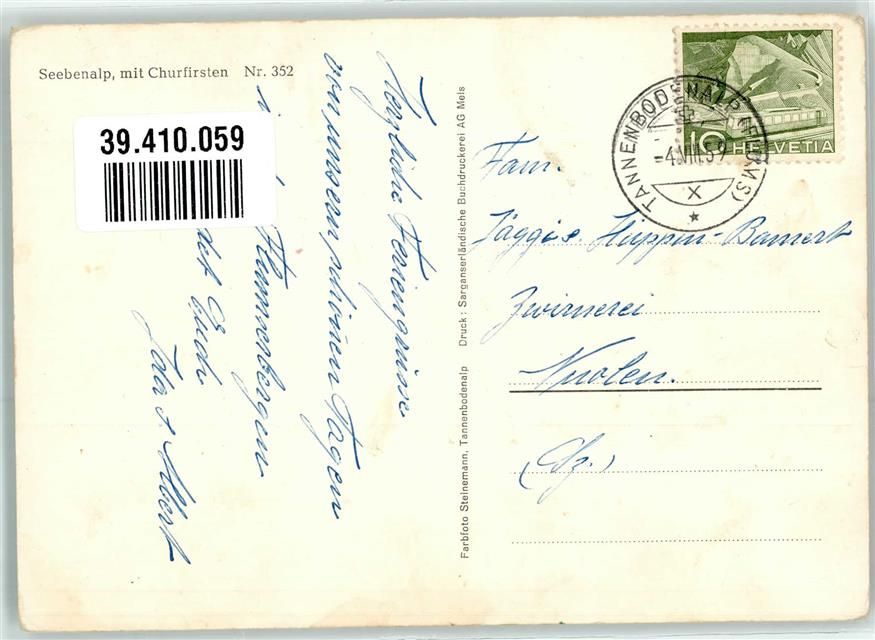 Seebenalp, mit Churfirsten Nr. 352
39.410.059
Herzliche Feriengrüsse
von unsern schönen Tagen
Flumserbergen
Euch
Ida & Albert
Farbfoto Steinemann, Tannenbodenalp Druck: Sarganserländische Buchdruckerei AG Mels
TANNENBODENALP (FLUMS)
-4.VIII.59
X
10 HELVETIA
Fam.
Jäggi & Hüppin-Bamert
Zwirnerei
Nuolen.
(Sz.)